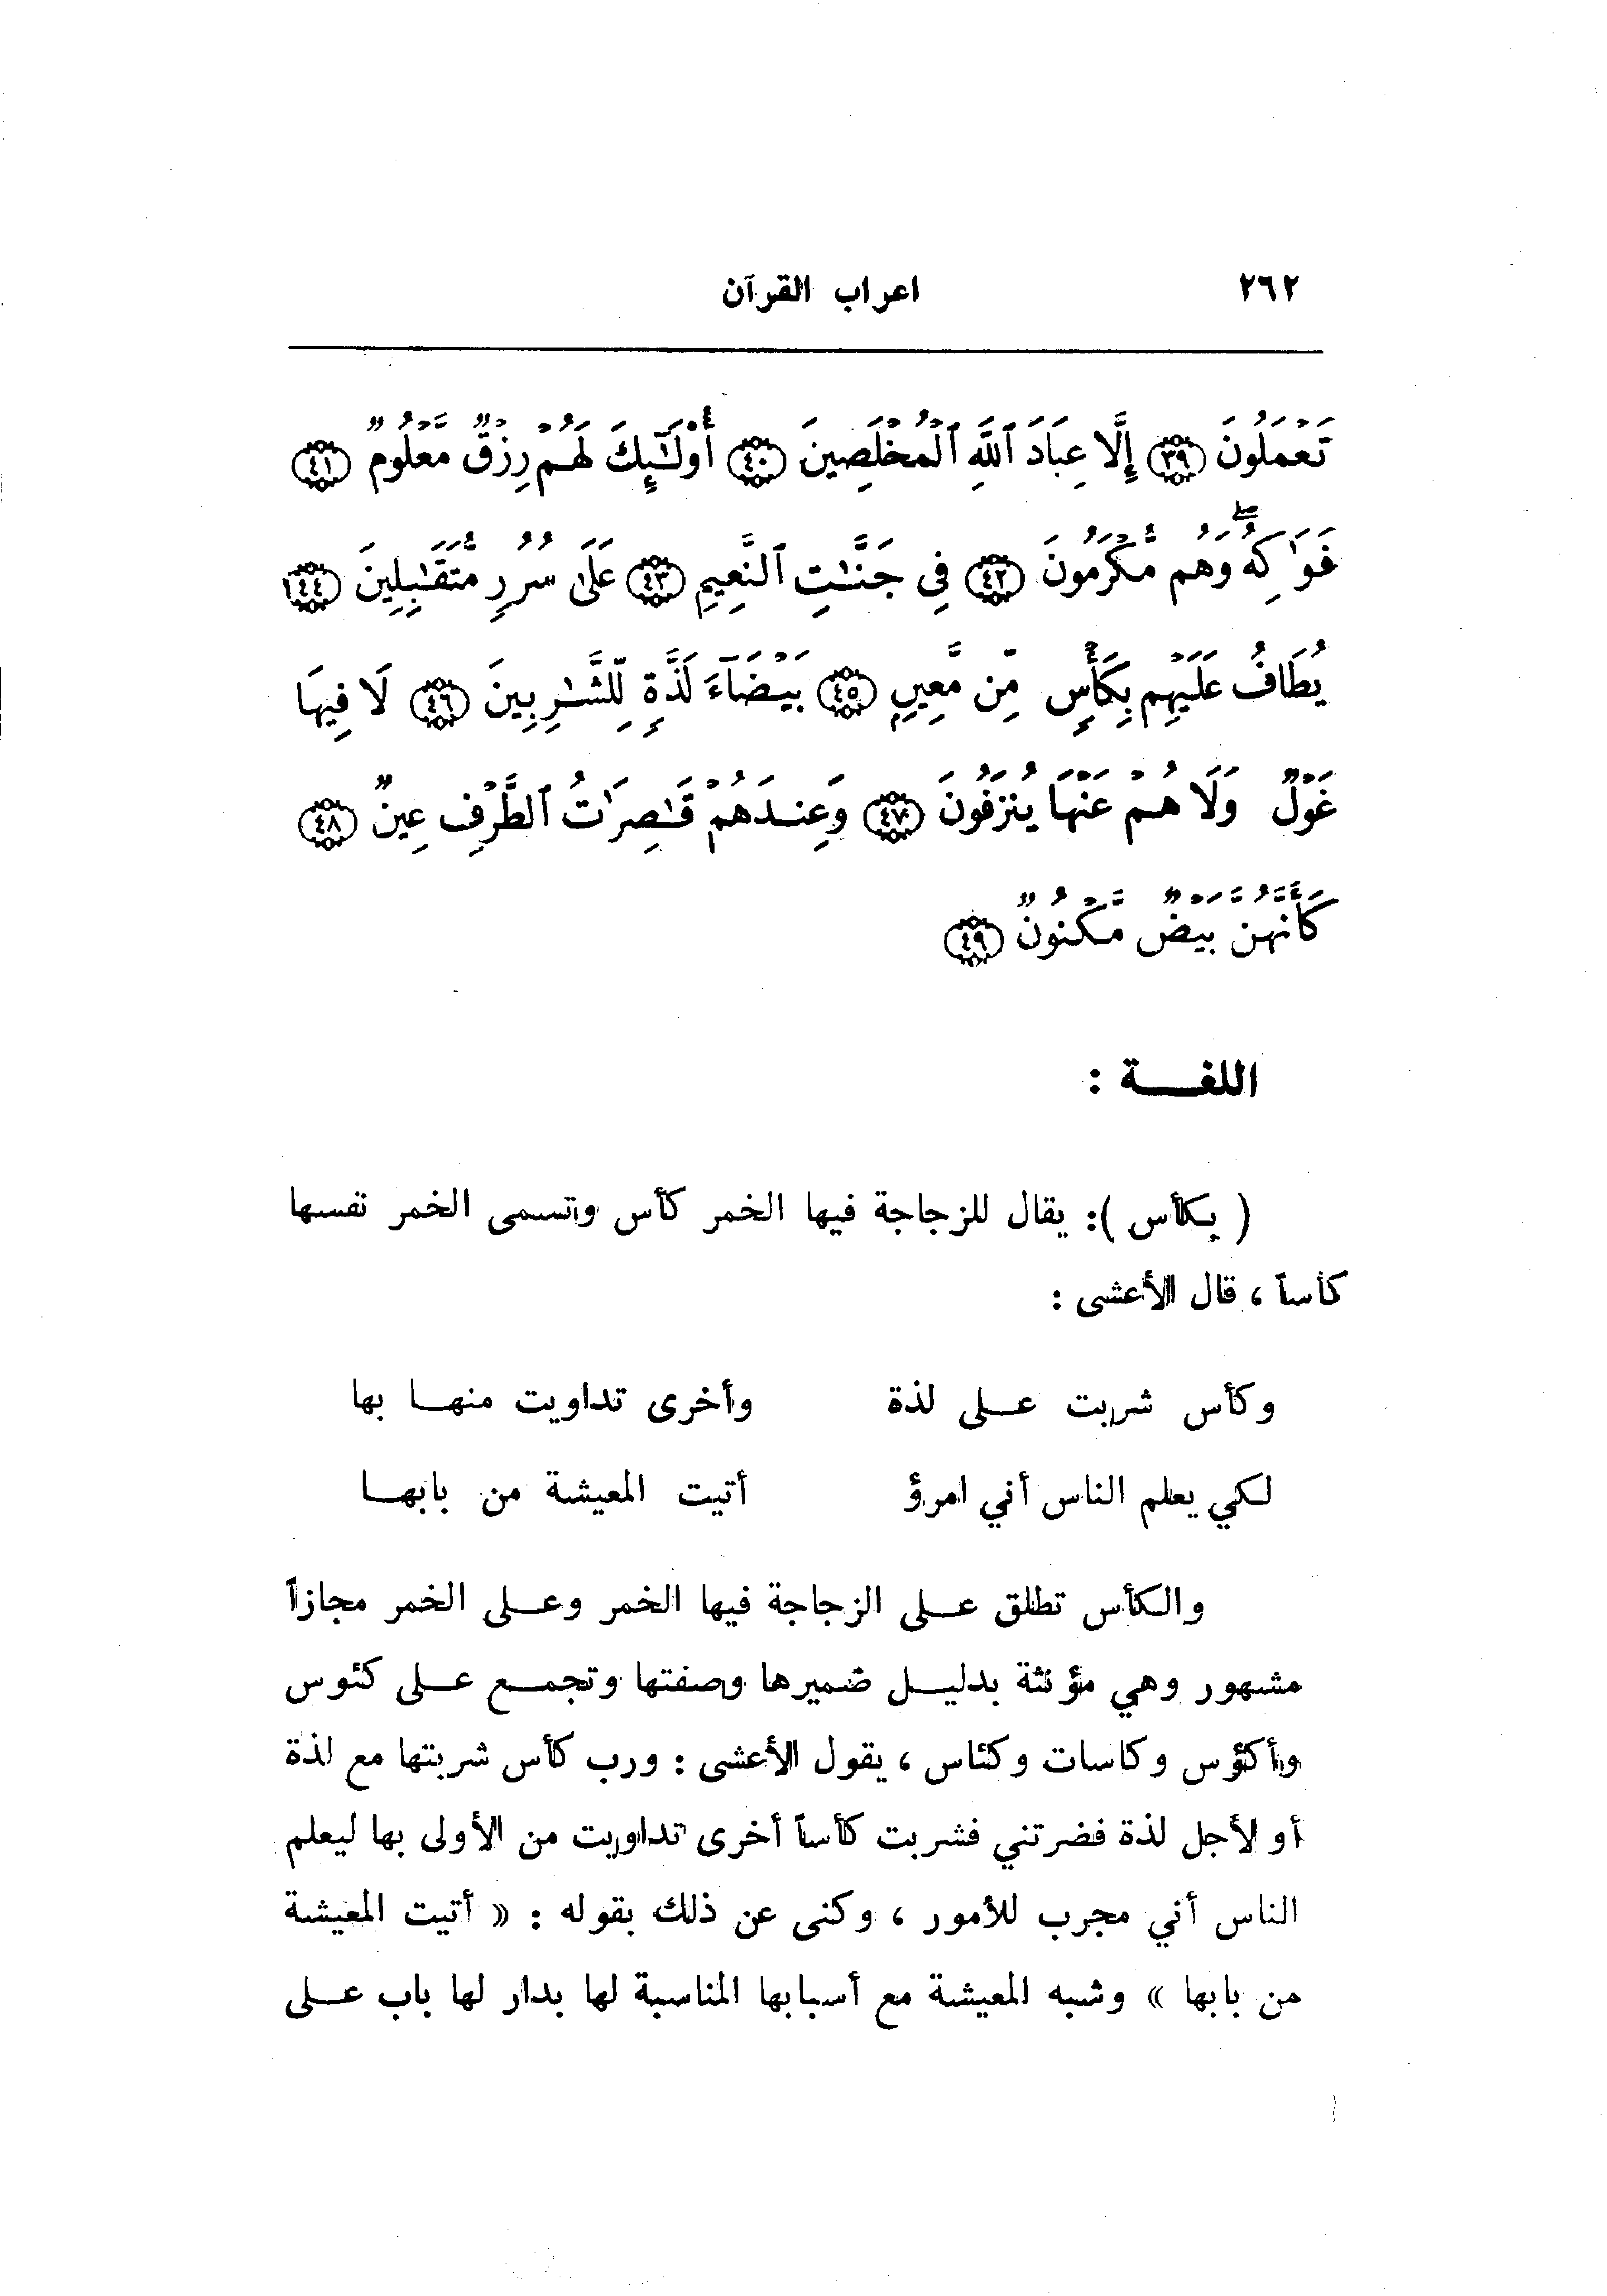 ٢٦٢
اعراب القرآن
تَعْمَلُونَ ﴿٣٩﴾ إِلَّا عِبَادَ ٱللَّهِ ٱلْمُخْلَصِينَ ﴿٤٠﴾ أُوْلَـٰٓئِكَ لَهُمْ رِزْقٌ مَّعْلُومٌ ﴿٤١﴾
فَوَٰكِهُ ۖ وَهُم مُّكْرَمُونَ ﴿٤٢﴾ فِى جَنَّـٰتِ ٱلنَّعِيمِ ﴿٤٣﴾ عَلَىٰ سُرُرٍ مُّتَقَـٰبِلِينَ ﴿٤٤﴾
يُطَافُ عَلَيْهِم بِكَأْسٍ مِّن مَّعِينٍۭ ﴿٤٥﴾ بَيْضَآءَ لَذَّةٍ لِّلشَّـٰرِبِينَ ﴿٤٦﴾ لَا فِيهَا
غَوْلٌ وَلَا هُمْ عَنْهَا يُنزَفُونَ ﴿٤٧﴾ وَعِندَهُمْ قَـٰصِرَٰتُ ٱلطَّرْفِ عِينٌ ﴿٤٨﴾
كَأَنَّهُنَّ بَيْضٌ مَّكْنُونٌ ﴿٤٩﴾
اللغـــة :
( بكأس ): يقال للزجاجة فيها الخمر كأس وتسمى الخمر نفسها
كأساً ، قال الأعشى :
وكأس شربت عـلى لذة وأخرى تداويت منهـا بها
لكي يعلم الناس أني امرؤ أتيت المعيشة من بابهـا
والكأس تطلق عـلى الزجاجة فيها الخمر وعـلى الخمر مجازاً
مشهور وهي مؤنثة بدليـل ضميرها وصفتها وتجمـع عـلى كئوس
وأكؤس وكاسات وكئاس ، يقول الأعشى : ورب كأس شربتها مع لذة
أو لأجل لذة فضرتني فشربت كأساً أخرى تداويت من الأولى بها ليعلم
الناس أني مجرب للأمور ، وكنى عن ذلك بقوله : « أتيت المعيشة
من بابها » وشبه المعيشة مع أسبابها المناسبة لها بدار لها باب عـلى